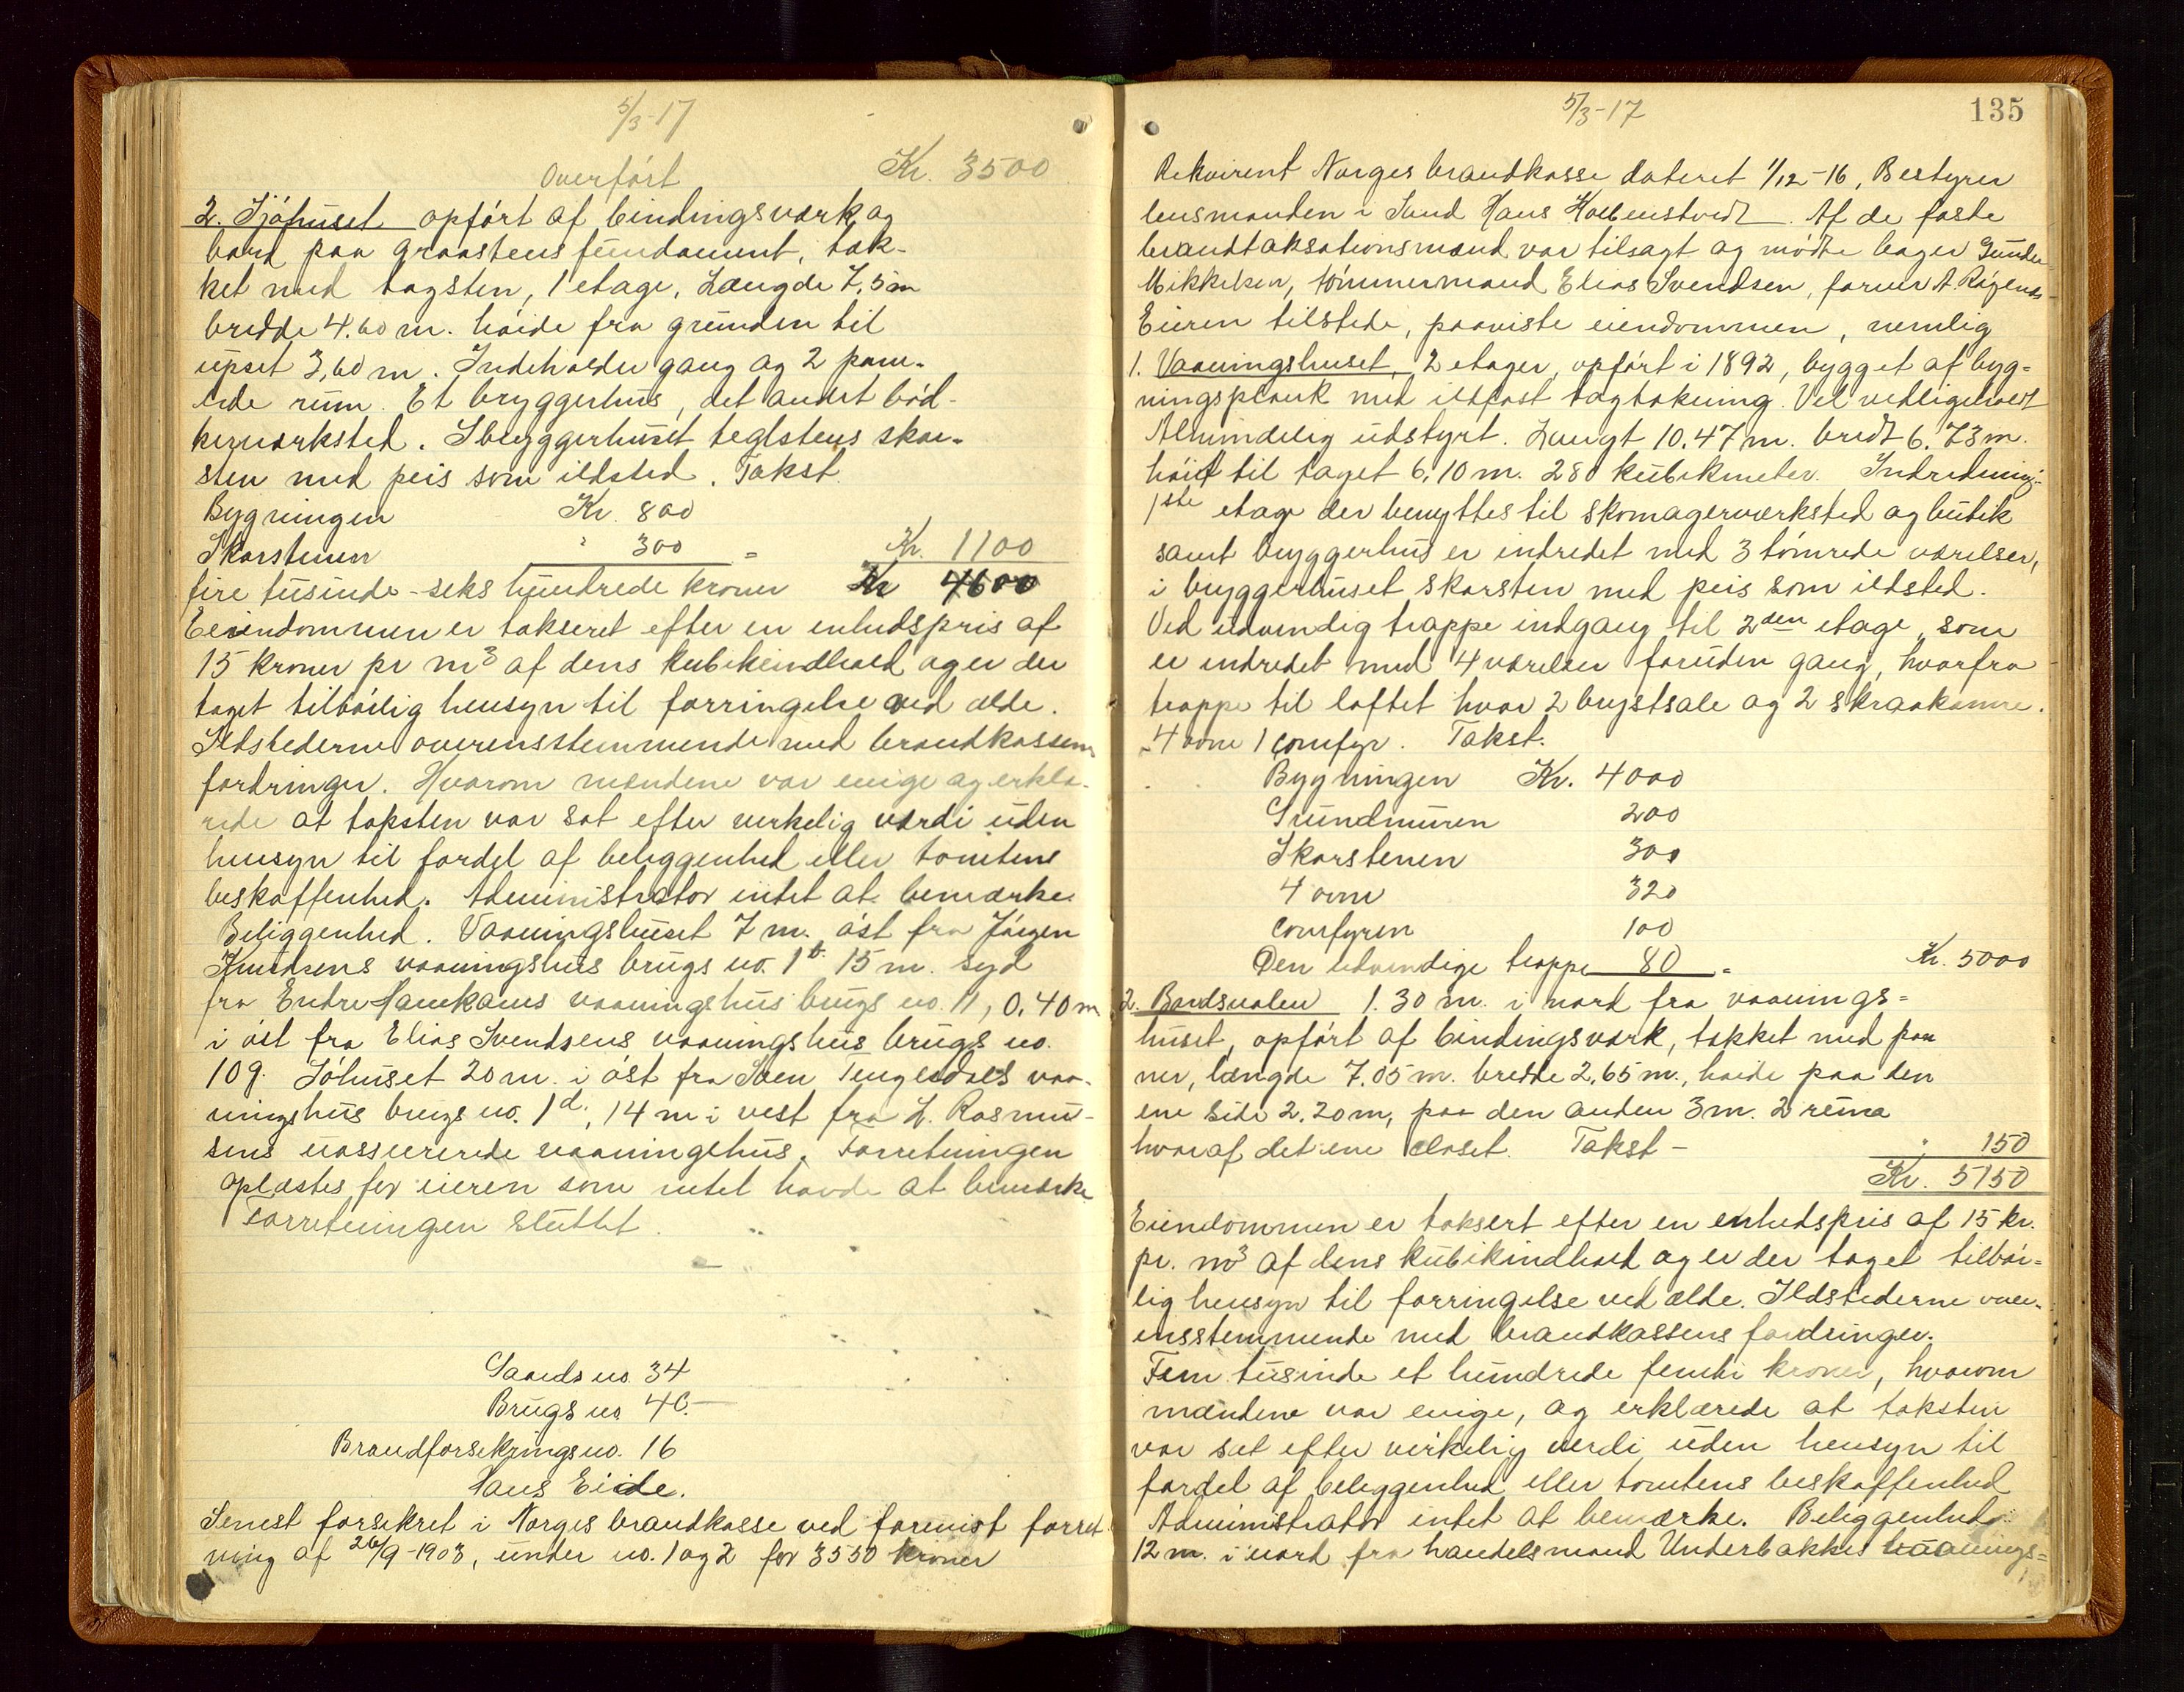 5/3-17
Overført Kr. 3500
2. Sjøhuset opført af bindingsværk og
bord paa graastens fundament, tæk-
ket med tagsten, 1 etage, Længde 7,5 m
bredde 4.60 m. høide fra grunden til
upset 3,60 m. Indeholder gang og 2 pane-
lede rum. Et bryggerhus, det andet bød-
kerværksted. I bryggerhuset teglstens skor-
sten med peis som ildsted. Takst
Bygningen Kr. 800
Skorstenen " 300 = Kr. 1100
fire tusinde-seks hundrede kroner Kr 4600
Eiendommen er takseret efter en enhedspris af
15 kroner pr m³ af dens kubikindhold og er der
taget tilbørlig hensyn til forringelse ved ælde.
Ildstederne overensstemmende med brandkassens
fordringer. Hvorom mændene var enige og erklæ-
rede at taksten var sat efter virkelig værdi uden
hensyn til fordel af beliggenhed eller tomtens
beskaffenhed. Administrator intet at bemærke
Beliggenhed. Vaaningshuset 7 m. øst fra Jørgen
Knudsens vaaningshus brugs no. 1b 15 m. syd
fra Endre Hamkams vaaningshus brugs no. 11, 0,40 m
i øst fra Elias Svendsens vaaningshus brugs no.
109. Søhuset 20 m. i øst fra Sven Tengesdals vaa-
ningshus brugs no. 1d, 14 m i vest fra L. Rasmus-
sens uassurerede vaaningshus. Forretningen
oplæstes for eieren som intet havde at bemærke
Forretningen sluttet.
Gaards no. 34
Brugs no. 40.
Brandforsikrings no. 16
Hans Eide.
Senest forsikret i Norges brandkasse ved forrige forret
ning af 26/9-1903, under no. 1 og 2 for 3550 kroner
5/3-17 135
Rekvirent Norges brandkasse dateret 1/12-16, Bestyrer
lensmanden i Sund Hans Halbenstvedt. Af de faste
brandtaksationsmænd var tilsagt og mødte bager Gunder
Mikkelsen, tømmermand Elias Svendsen, farver A. Røgenes
Eieren tilstede, paaviste eiendommen, nemlig
1. Vaaningshuset, 2 etager, opført i 1892, bygget af byg-
ningsplank med ildfast tagtækning. Vel vedligeholdt
Almindelig udstyrt. Langt 10.47 m. bredt 6.73 m.
høit til taget 6,10 m. 280 kubikmeter. Indredning:
1ste etage der benyttes til skomagerværksted og butik
samt bryggerhus er indredet med 3 tømrede værelser,
i bryggerhuset skorsten med peis som ildsted.
Ved udvendig trappe indgang til 2den etage, som
er indredet med 4 værelser foruden gang, hvorfra
trappe til loftet hvor 2 brystsale og 2 skraakamre.
4 ovne 1 comfyr. Takst.
Bygningen Kr. 4000
Grundmuren 200
Skorstenen 300
4 ovne 320
Comfyren 100
Den udvendige trappe 80 = Kr. 5000
2. Bordsvalen 1.30 m. i nord fra vaanings-
huset, opført af bindingsværk, tækket med pan
ner, længde 7,05 m. bredde 2,65 m., høide paa den
ene side 2.20 m, paa den anden 3 m. 2 ruma
hvoraf det ene closet. Takst - " 150
Kr. 5150
Eiendommen er taksert efter en enhedspris af 15 kr.
pr. m³ af dens kubikindhold og er der taget tilbør-
lig hensyn til forringelse ved ælde. Ildstederne over-
ensstemmende med brandkassens fordringer.
Fem tusinde et hundrede femti kroner, hvorom
mændene var enige, og erklærede at taksten
var sat efter virkelig verdi uden hensyn til
fordel af beliggenhed eller tomtens beskaffenhed
Administrator intet at bemærke. Beliggenhed:
12 m. i nord fra handelsmand Underbakkes vaanings-